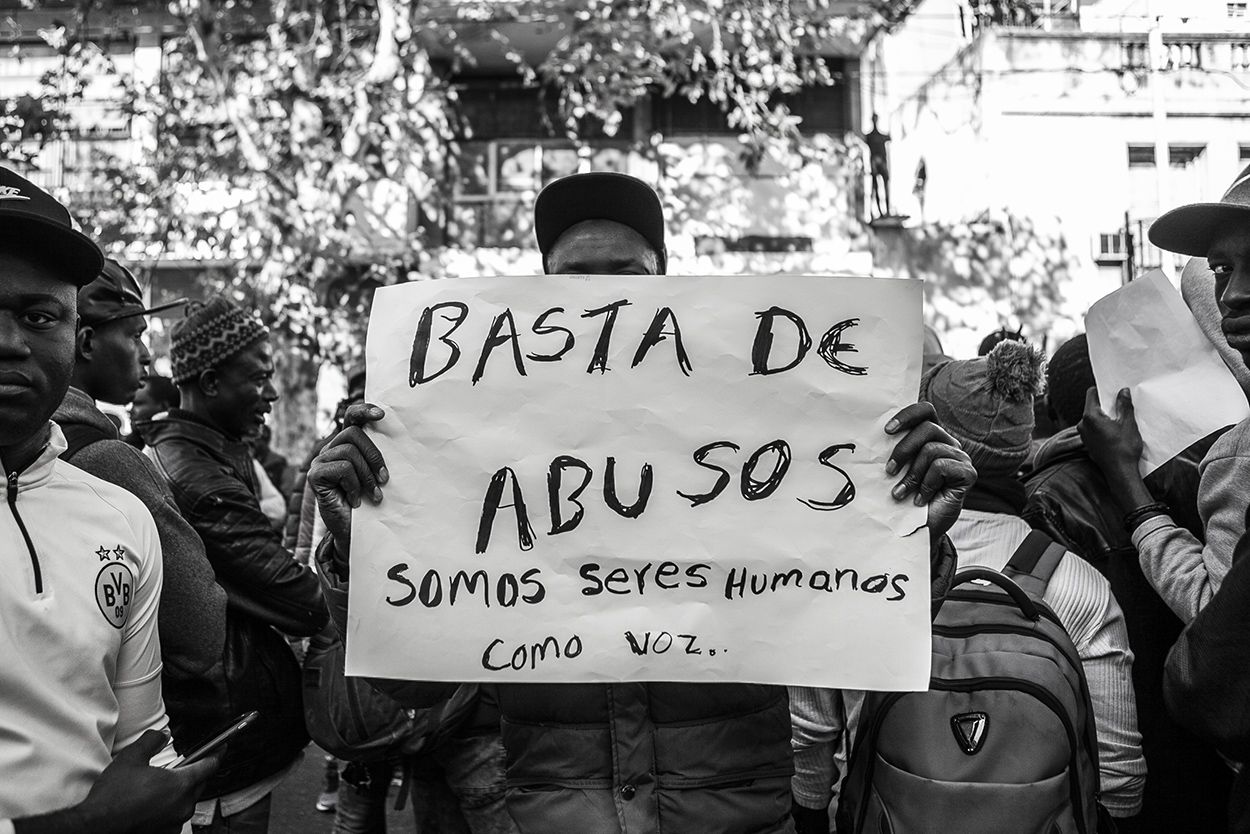 BASTA DE
ABUSOS
somos seres Humanos
como voz..
BVB
09